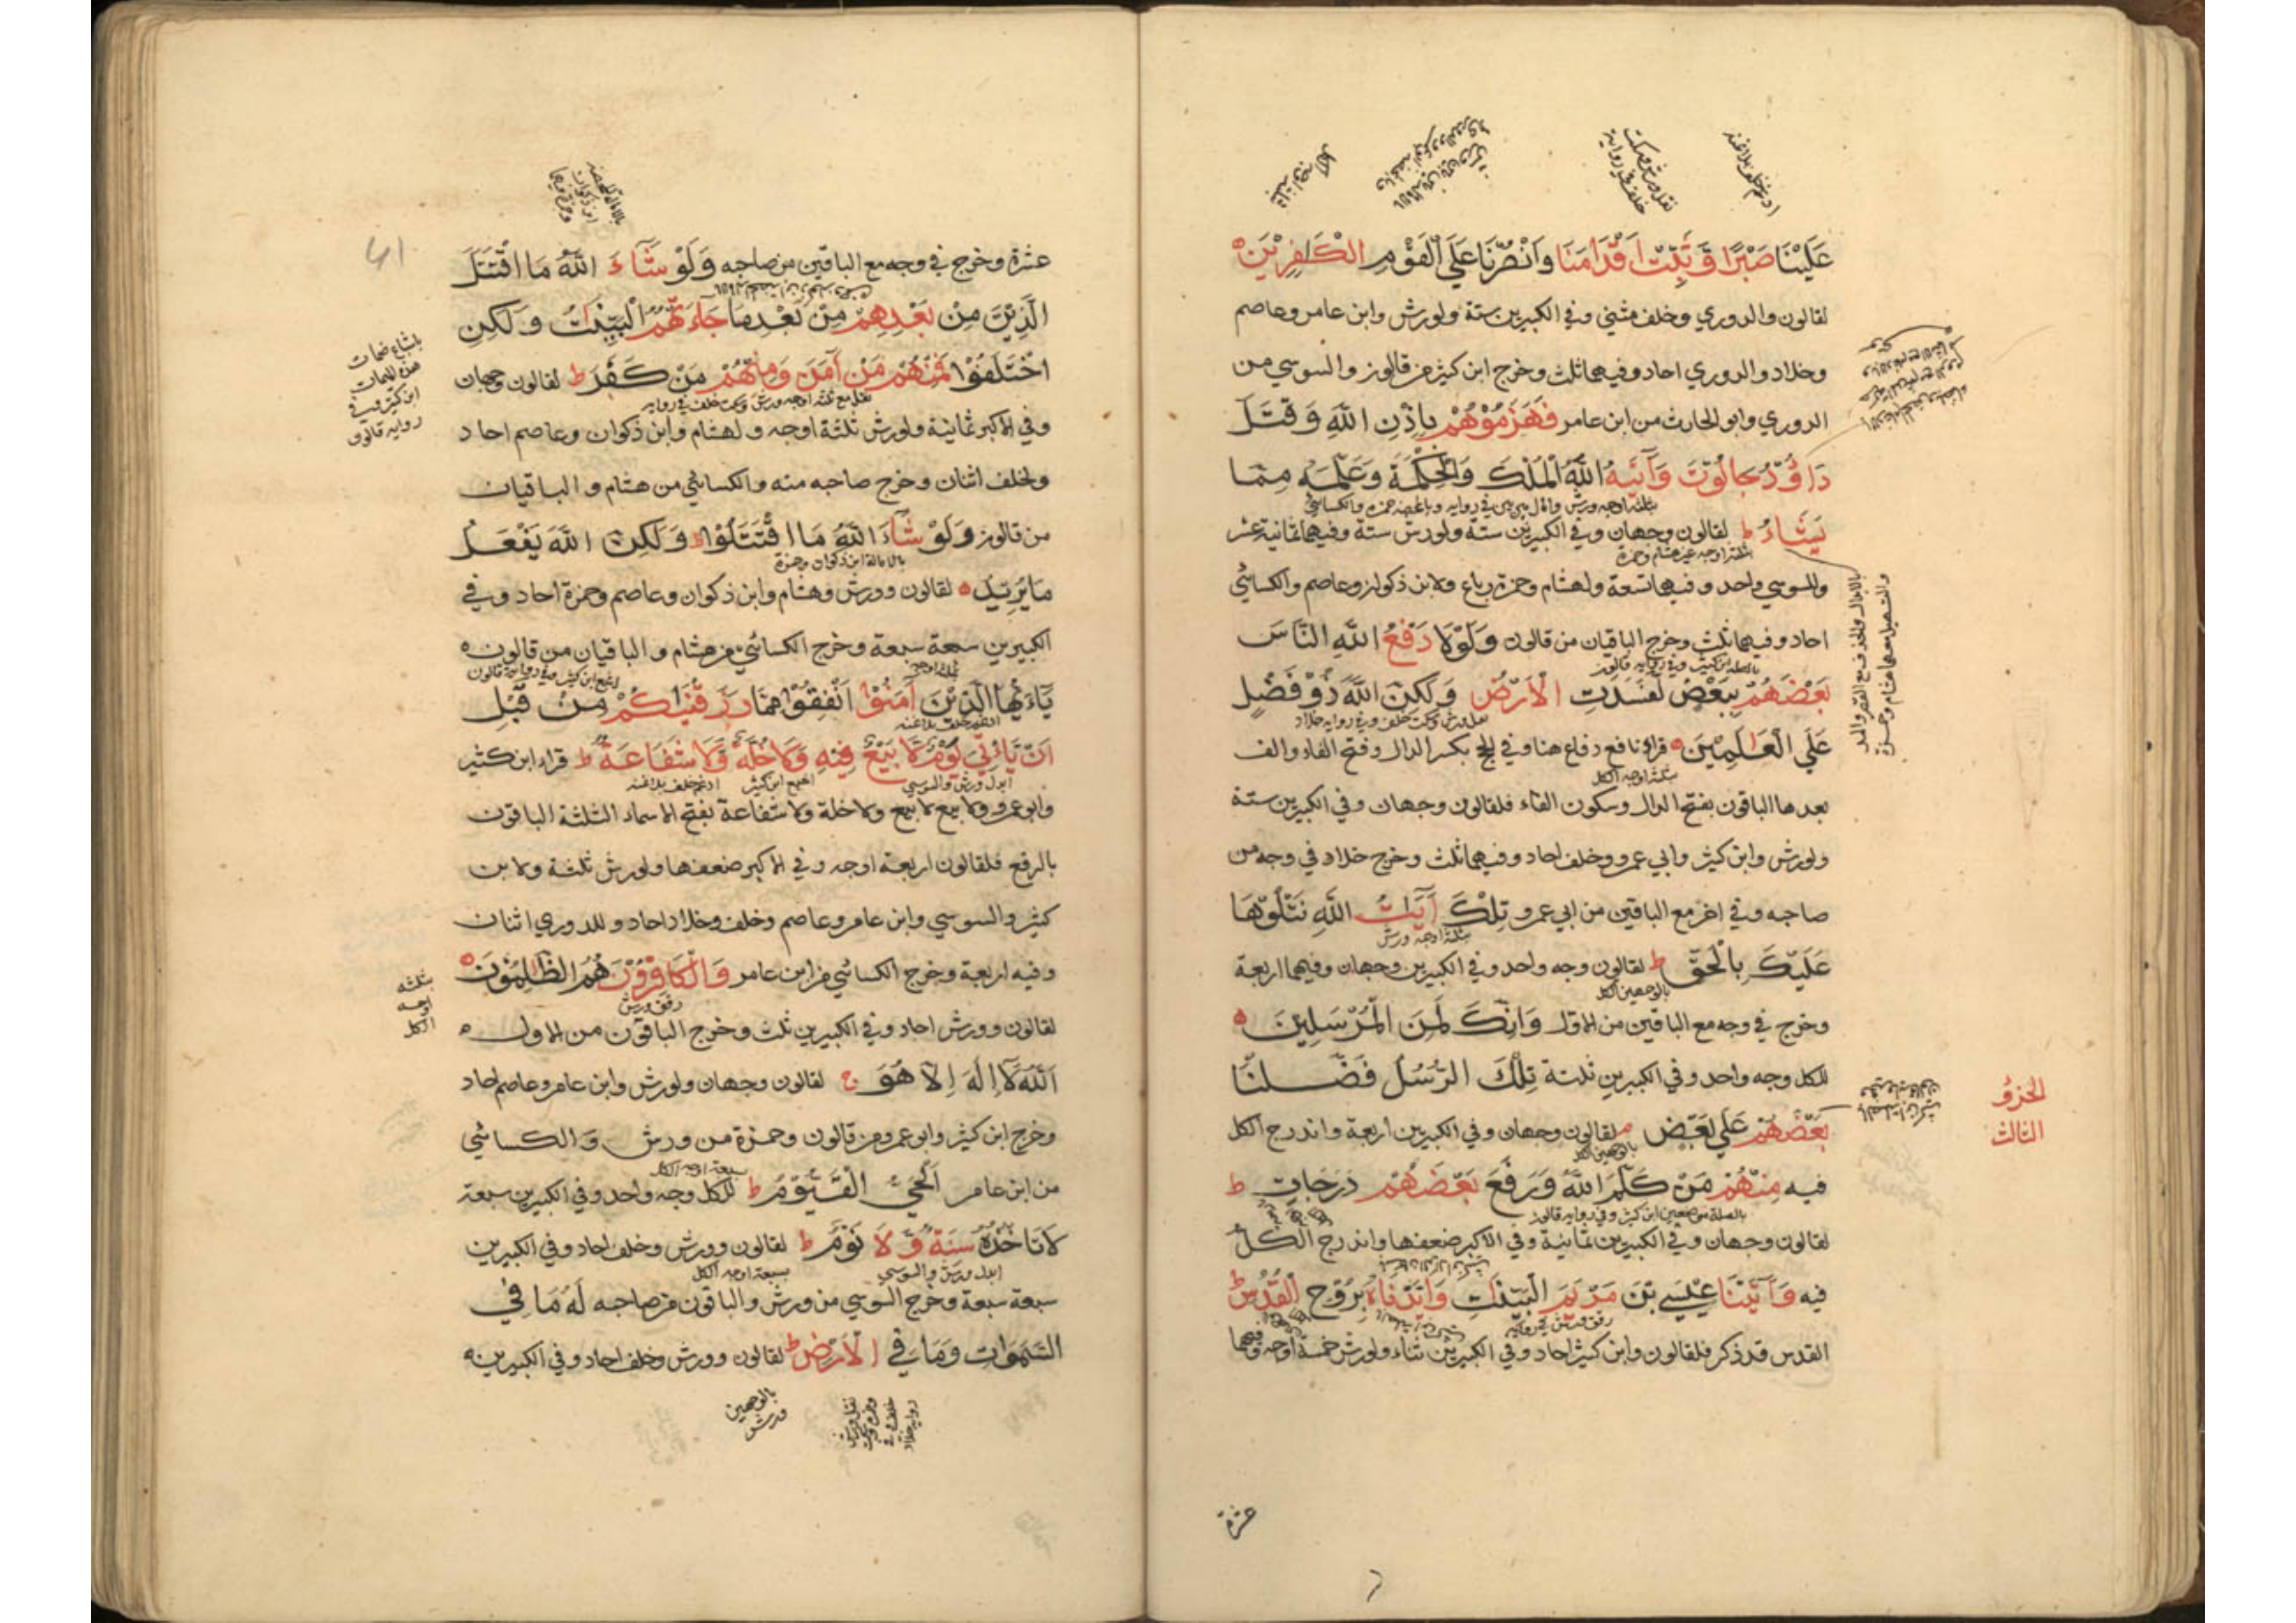 عَلَيْنَا صَبْرًا وَثَبِّتْ أَقْدَامَنَا وَانْصُرْنَا عَلَي الْقَوْمِ الْكَافِرِيْنَ
لقالون والدوري وخلف مثني وفي الكبيرين ستة ولورش وابن عامر وعاصم
وخلاد والدوري احاد وفيهما ثلث وخرج ابن كثير من قالون والسوسي من
الدوري وابو الحارث من ابن عامر فَهَزَمُوْهُمْ بِاِذْنِ اللّٰهِ وَقَتَلَ
دَاوُدُ جَالُوْتَ وَآتٰيهُ اللّٰهُ الْمُلْكَ وَالْحِكْمَةَ وَعَلَّمَهُ مِمَّا
ثلثة اوجه ورش
يَشَاءُ ط لقالون وجهان وفي الكبيرين ستة ولورش ستة وفيهما ثمانية عشر
وللسوسي واحد وفيهما تسعة ولهشام وحمزة رباع ولابن ذكوان وعاصم والكسائي
احاد وفيهما ثلث وخرج الباقيان من قالون وَلَوْلَا دَفْعُ اللّٰهِ النَّاسَ
بالصلة ابن كثير وفي رواية قالون
بَعْضَهُمْ بِبَعْضٍ لَفَسَدَتِ الْاَرْضُ وَلٰكِنَّ اللّٰهَ ذُوْ فَضْلٍ
عَلَي الْعَالَمِيْنَ قراء نافع دفاع هنا وفي الحج بكسر الدال وفتح الفاء والف
ثلثة اوجه الكل
بعدها الباقون بفتح الدال وسكون الفاء فلقالون وجهان وفي الكبيرين ستة
ولورش وابن كثير وابي عمرو وخلف احاد وفيهما ثلث وخرج خلاد في وجه من
صاحبه وفي اخر مع الباقين من ابي عمرو تِلْكَ آيَاتُ اللّٰهِ نَتْلُوْهَا
ثلثة اوجه ورش
عَلَيْكَ بِالْحَقِّ ط لقالون وجه واحد وفي الكبيرين وجهان وفيهما اربعة
بالوجهين الكل
وخرج في وجه مع الباقين من الاول وَاِنَّكَ لَمِنَ الْمُرْسَلِيْنَ
للكل وجه واحد وفي الكبيرين ثلثة تِلْكَ الرُّسُلُ فَضَّلْنَا
الجزؤ
الثالث
بَعْضَهُمْ عَلَي بَعْضٍ م لقالون وجهان وفي الكبيرين اربعة واندرج الكل
بالوجهين الكل
فيه مِنْهُمْ مَنْ كَلَّمَ اللّٰهُ وَرَفَعَ بَعْضَهُمْ دَرَجَاتٍ ط
بالصلة موضعين ابن كثير وفي رواية قالون
لقالون وجهان وفي الكبيرين ثمانية وفي الاكبر ضعفها واندرج الكل
فيه وَآتَيْنَا عِيْسَي بْنَ مَرْيَمَ الْبَيِّنَاتِ وَاَيَّدْنَاهُ بِرُوْحِ الْقُدُسِ ط
القدس قد ذكر فلقالون وابن كثير احاد وفي الكبيرين ثناء ولورش خمسة اوجه وفيهما
عشرة
عشرة وخرج في وجه مع الباقين من صاحبه وَلَوْ شَاءَ اللّٰهُ مَا اقْتَتَلَ
الَّذِيْنَ مِنْ بَعْدِهِمْ مِنْ بَعْدِ مَا جَاءَتْهُمُ الْبَيِّنَاتُ وَلٰكِنِ
اخْتَلَفُوْا فَمِنْهُمْ مَنْ آمَنَ وَمِنْهُمْ مَنْ كَفَرَ ط لقالون وجهان
نقل مع ثلثة اوجه ورش وسكت خلف في رواية
باشباع ضمات
هذه الميمات
ابن كثير وفي
رواية قالون
وفي الاكبر ثمانية ولورش ثلثة اوجه ولهشام وابن ذكوان وعاصم احاد
ولخلف اثنان وخرج صاحبه منه والكسائي من هشام والباقيان
من قالون وَلَوْ شَاءَ اللّٰهُ مَا اقْتَتَلُوْا وَلٰكِنَّ اللّٰهَ يَفْعَلُ
بالامالة ابن ذكوان وحمزة
مَا يُرِيْدُ لقالون وورش وهشام وابن ذكوان وعاصم وحمزة احاد وفي
الكبيرين سبعة سبعة وخرج الكسائي من هشام والباقيان من قالون
يٰاَيُّهَا الَّذِيْنَ آمَنُوْا اَنْفِقُوْا مِمَّا رَزَقْنَاكُمْ مِنْ قَبْلِ
اَنْ يَأْتِيَ يَوْمٌ لَا بَيْعٌ فِيْهِ وَلَا خُلَّةٌ وَلَا شَفَاعَةٌ ط قراء ابن كثير
ابدل ورش والسوسي اشبع ابن كثير ادغم خلف بلا غنة
وابو عمرو لا بيع ولا خلة ولا شفاعة بفتح الاسماء الثلثة الباقون
بالرفع فلقالون اربعة اوجه وفي الاكبر ضعفها ولورش ثلثة ولابن
كثير والسوسي وابن عامر وعاصم وخلف وخلاد احاد وللدوري اثنان
وفيه اربعة وخرج الكسائي من ابن عامر وَالْكَافِرُوْنَ هُمُ الظَّالِمُوْنَ
رقق ورش
ثلثة
اوجه
الكل
لقالون وورش احاد وفي الكبيرين ثلث وخرج الباقون من الاول
اَللّٰهُ لَا اِلٰهَ اِلَّا هُوَ ج لقالون وجهان ولورش وابن عامر وعاصم احاد
وخرج ابن كثير وابو عمرو من قالون وحمزة من ورش والكسائي
من ابن عامر اَلْحَيُّ الْقَيُّوْمُ ط للكل وجه واحد وفي الكبيرين سبعة
سبعة اوجه الكل
لَا تَاْخُذُهُ سِنَةٌ وَّلَا نَوْمٌ ط لقالون وورش وخلف احاد وفي الكبيرين
ابدل ورش والسوسي سبعة اوجه الكل
سبعة سبعة وخرج السوسي من ورش والباقون من صاحبه لَهُ مَا فِي
السَّمٰوَاتِ وَمَا فِي الْاَرْضِ ط لقالون وورش وخلف احاد وفي الكبيرين
بالوجهين
ورش